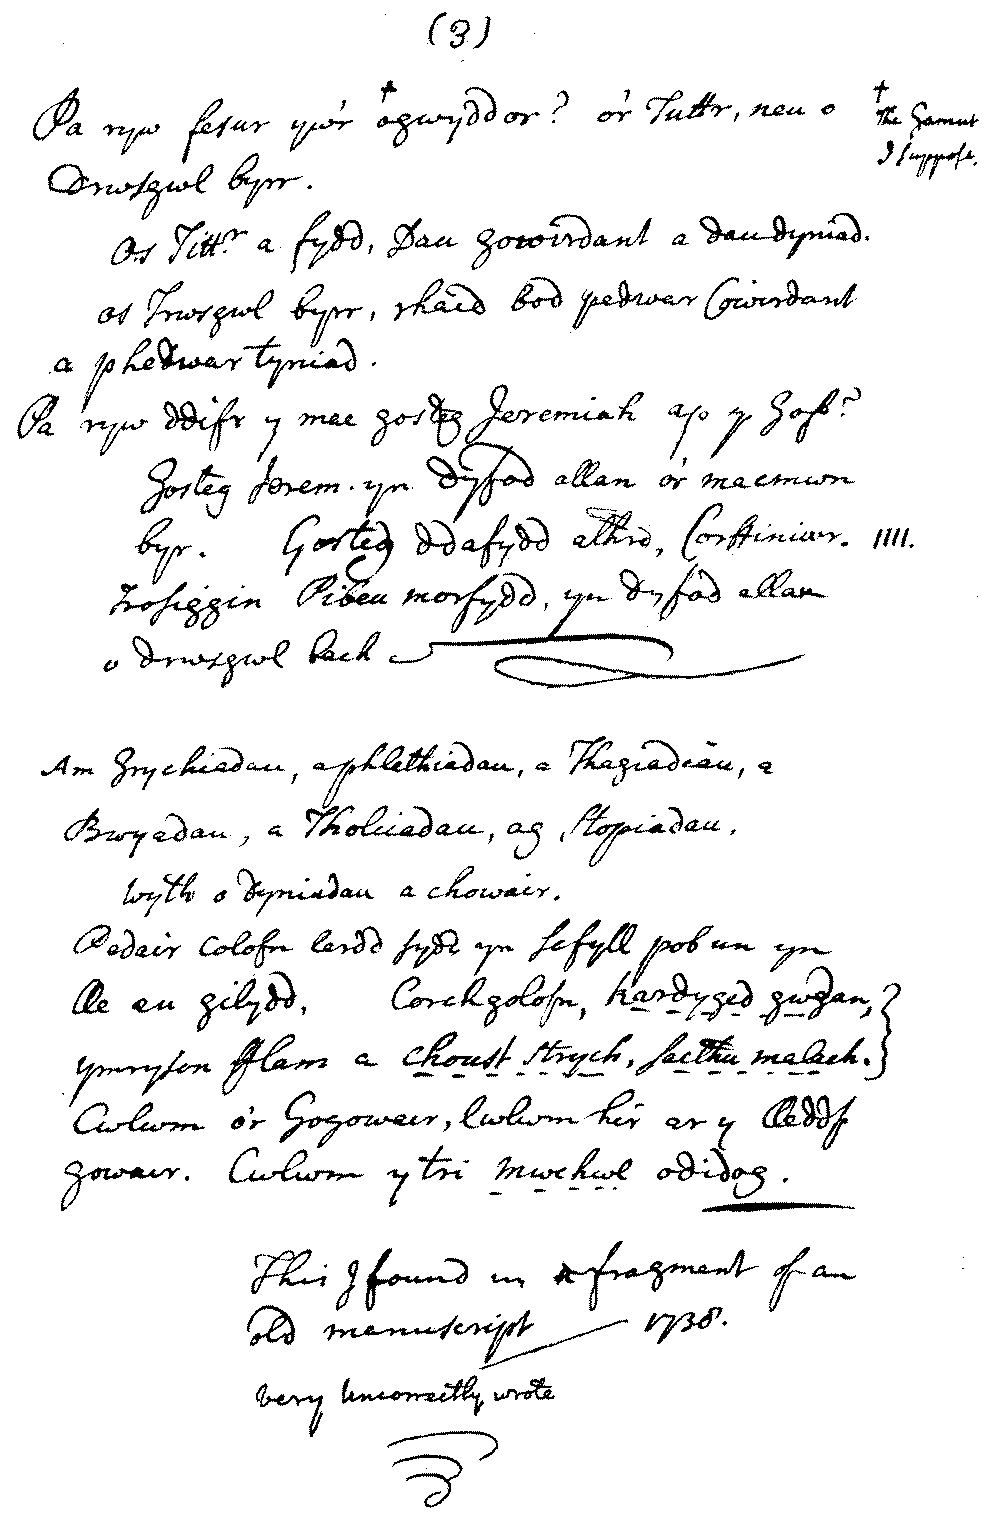 (3)
Pa ryw fesur yw'r † ogwyddor? o'r Tuttr, neu o
† The Gamut
I suppose.
Drwsgwl byrr.
Os Titt.r a fydd, Dau gowirdant a dau dyniad.
os Trwsgwl byrr, rhaid bod pedwar Cowirdant
a phedwar tyniad.
Pa ryw ddifr y mae gosteg Jeremiah ap y Goff?
Gosteg Jerem. yn dyfod allan o'r macmwn
byr. Gosteg ddafydd athro, Corffiniwr. 1111.
Trosiggin Pibeu morfydd, yn dyfod allan
o drwsgwl bach
Am Grychiadau, a phlethiadau, a Thagiadau, a
Bwyadau, a Tholiadau, ag Stopiadau.
wyth o dyniadau a chowair.
Pedair colofn cerdd sydd yn sefyll pob un yn
lle eu gilydd, Corchgolofn, kardyged gwgan,
ymryson fflam a choust strych, saethu malach.
Cwlwm o'r Gogowair, Cwlwm hir ar y lleddf
gowair. Cwlwm y tri mwchwl odidog.
This I found in a fragment of an
old manuscript 1738.
very uncorrectly wrote